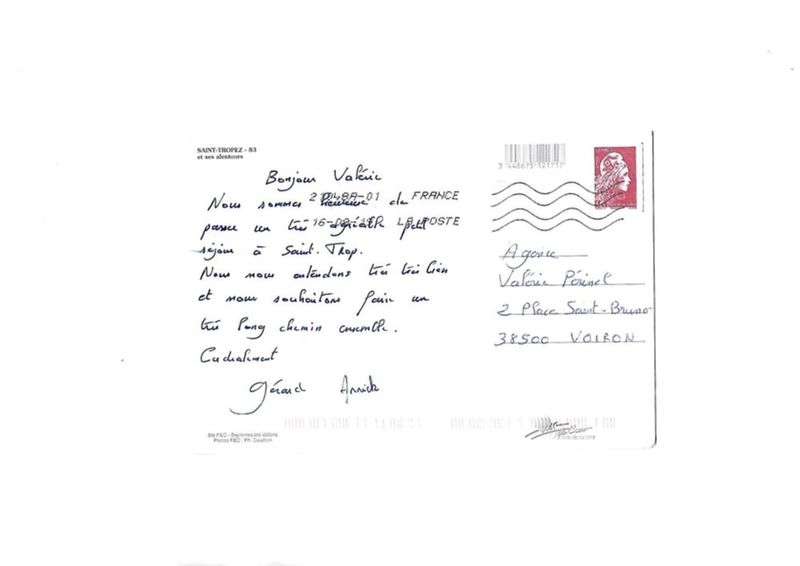 SAINT-TROPEZ - 83
et ses alentours
Bonjour Valérie
Nous sommes heureux de
passer un très agréable petit
séjour à Saint-Trop.
Nous nous entendons très très bien
et nous souhaitons faire un
très long chemin ensemble.
Cordialement
Gérard Annick
3 448675 121717
21048A-01 FRANCE
LA POSTE
Agence
Valérie Périnel
2 Place Saint-Bruno
38500 VOIRON